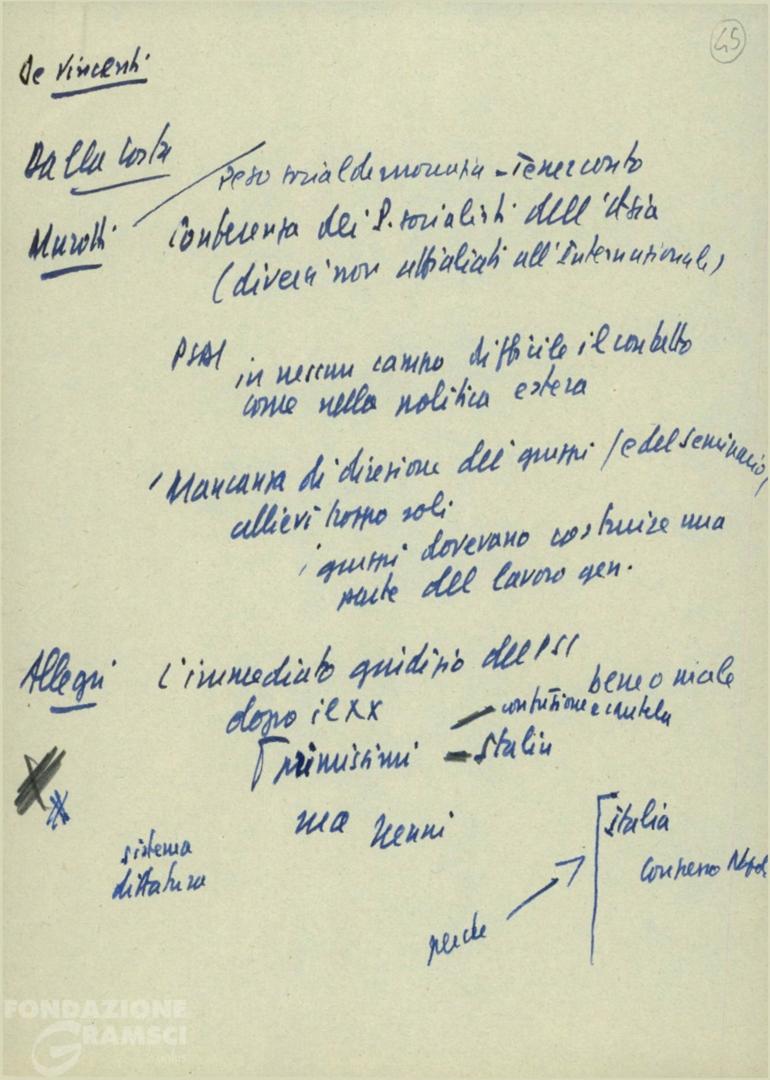 45
De Vincenti
Dalla Costa
Peso socialdemocrazia - Tener conto
Murotti Conferenza dei P. socialisti dell'Asia
(diversi non affiliati all'Internazionale)
PSDI in nessun campo difficile il contatto
come nella politica estera
Mancanza di direzione dei gruppi (e del seminario)
allievi troppo soli
i gruppi dovevano costruire una
parte del lavoro gen.
Allegri L'immediato giudizio del PSI
bene o male
dopo il XX
confusione e cautela
primissimi - Stalin
ma Nenni
sistema
dittatura
Italia
Congresso Napol
perché
FONDAZIONE
GRAMSCI